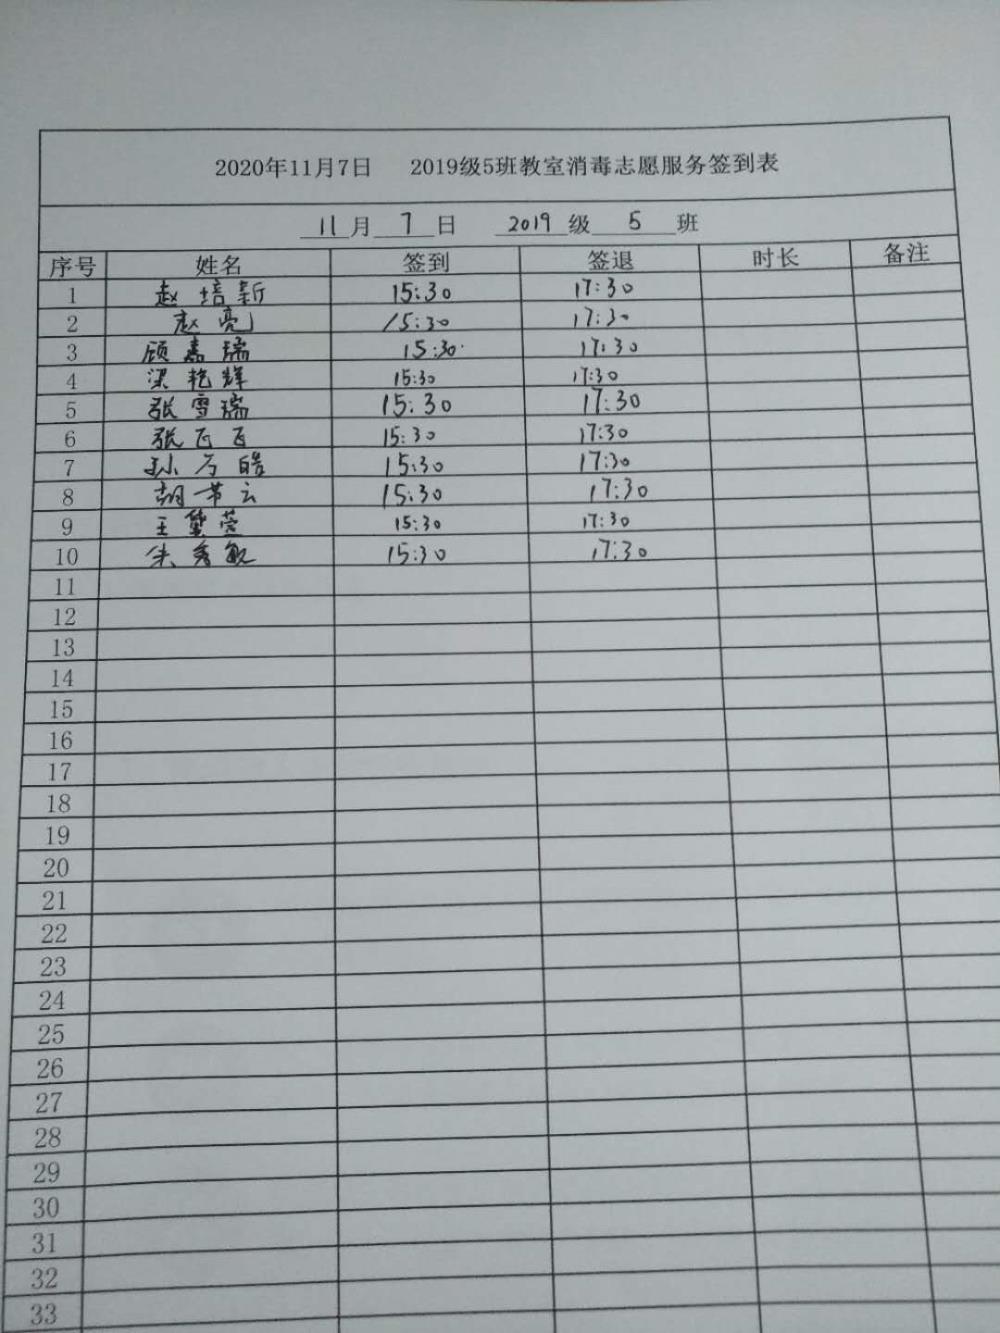 2020年11月7日 2019级5班教室消毒志愿服务签到表
11月7日 2019级5班
序号 姓名 签到 签退 时长 备注
1 赵培新 15:30 17:30
2 赵亮 15:30 17:30
3 顾嘉瑞 15:30 17:30
4 梁艳辉 15:30 17:30
5 张雪瑞 15:30 17:30
6 张飞飞 15:30 17:30
7 孙万皓 15:30 17:30
8 胡节云 15:30 17:30
9 王黛萱 15:30 17:30
10 朱秀敏 15:30 17:30
11
12
13
14
15
16
17
18
19
20
21
22
23
24
25
26
27
28
29
30
31
32
33